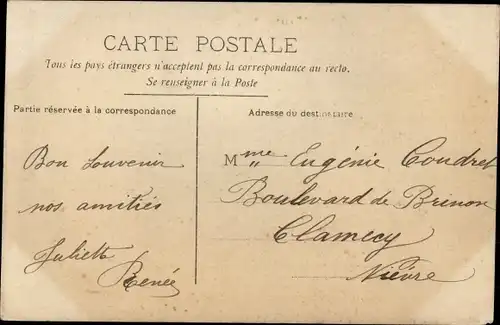 CARTE POSTALE
Tous les pays étrangers n'acceptent pas la correspondance au recto.
Se renseigner à la Poste
Partie réservée à la correspondance
Adresse du destinataire
Bon Souvenir
nos amitiés
Juliette
Renée
Mme Eugénie Coudret
Boulevard de Brinon
Clamecy
Nièvre